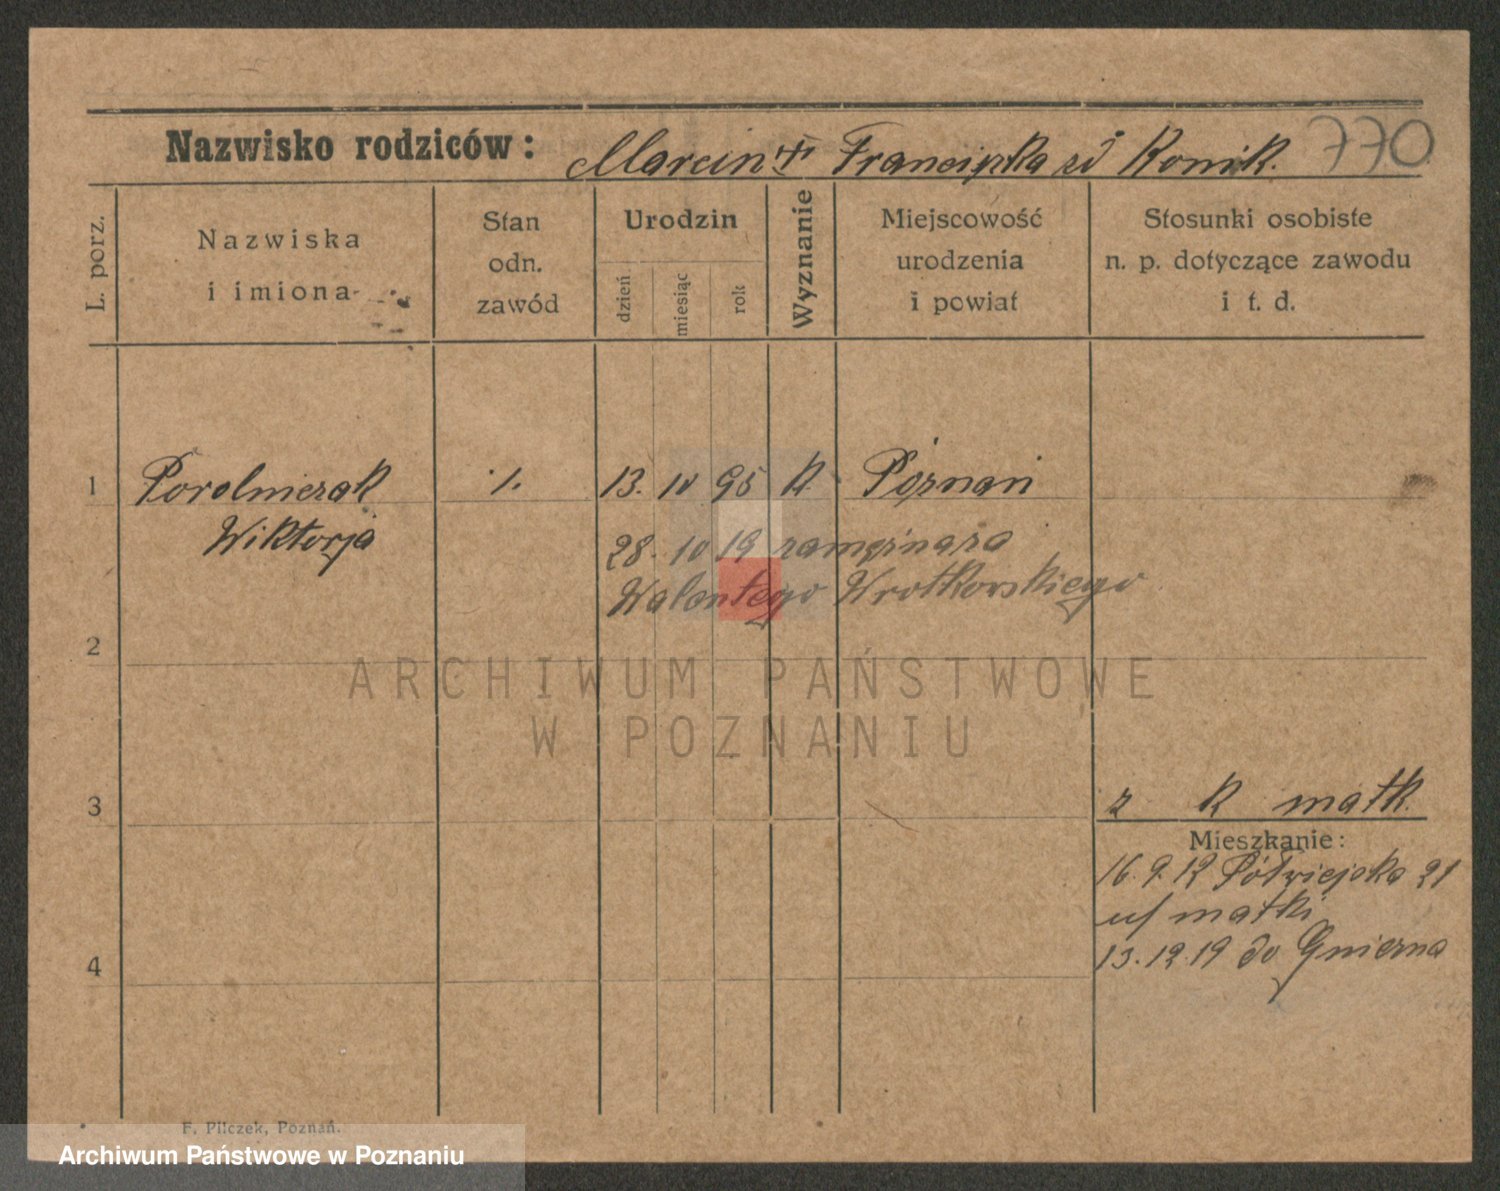 Nazwisko rodziców: Marcin + Franciszka zd Konik. 770
L. porz.
Nazwiska
i imiona
Stan
odn.
zawód
Urodzin
dzień
miesiąc
rok
Wyznanie
Miejscowość
urodzenia
i powiat
Stosunki osobiste
n. p. dotyczące zawodu
i t. d.
1 1. 13. 10 95 k. Poznań
Wiktorja
28. 10 19
Walentego Wrotkowskiego
2
ARCHIWUM PAŃSTWOWE
W POZNANIU
3 z k matk.
Mieszkanie:
16.9.12 Półwiejska 21
u/ matki
13.12.19 do Gniezna
4
F. Pilczek, Poznań.
Archiwum Państwowe w Poznaniu